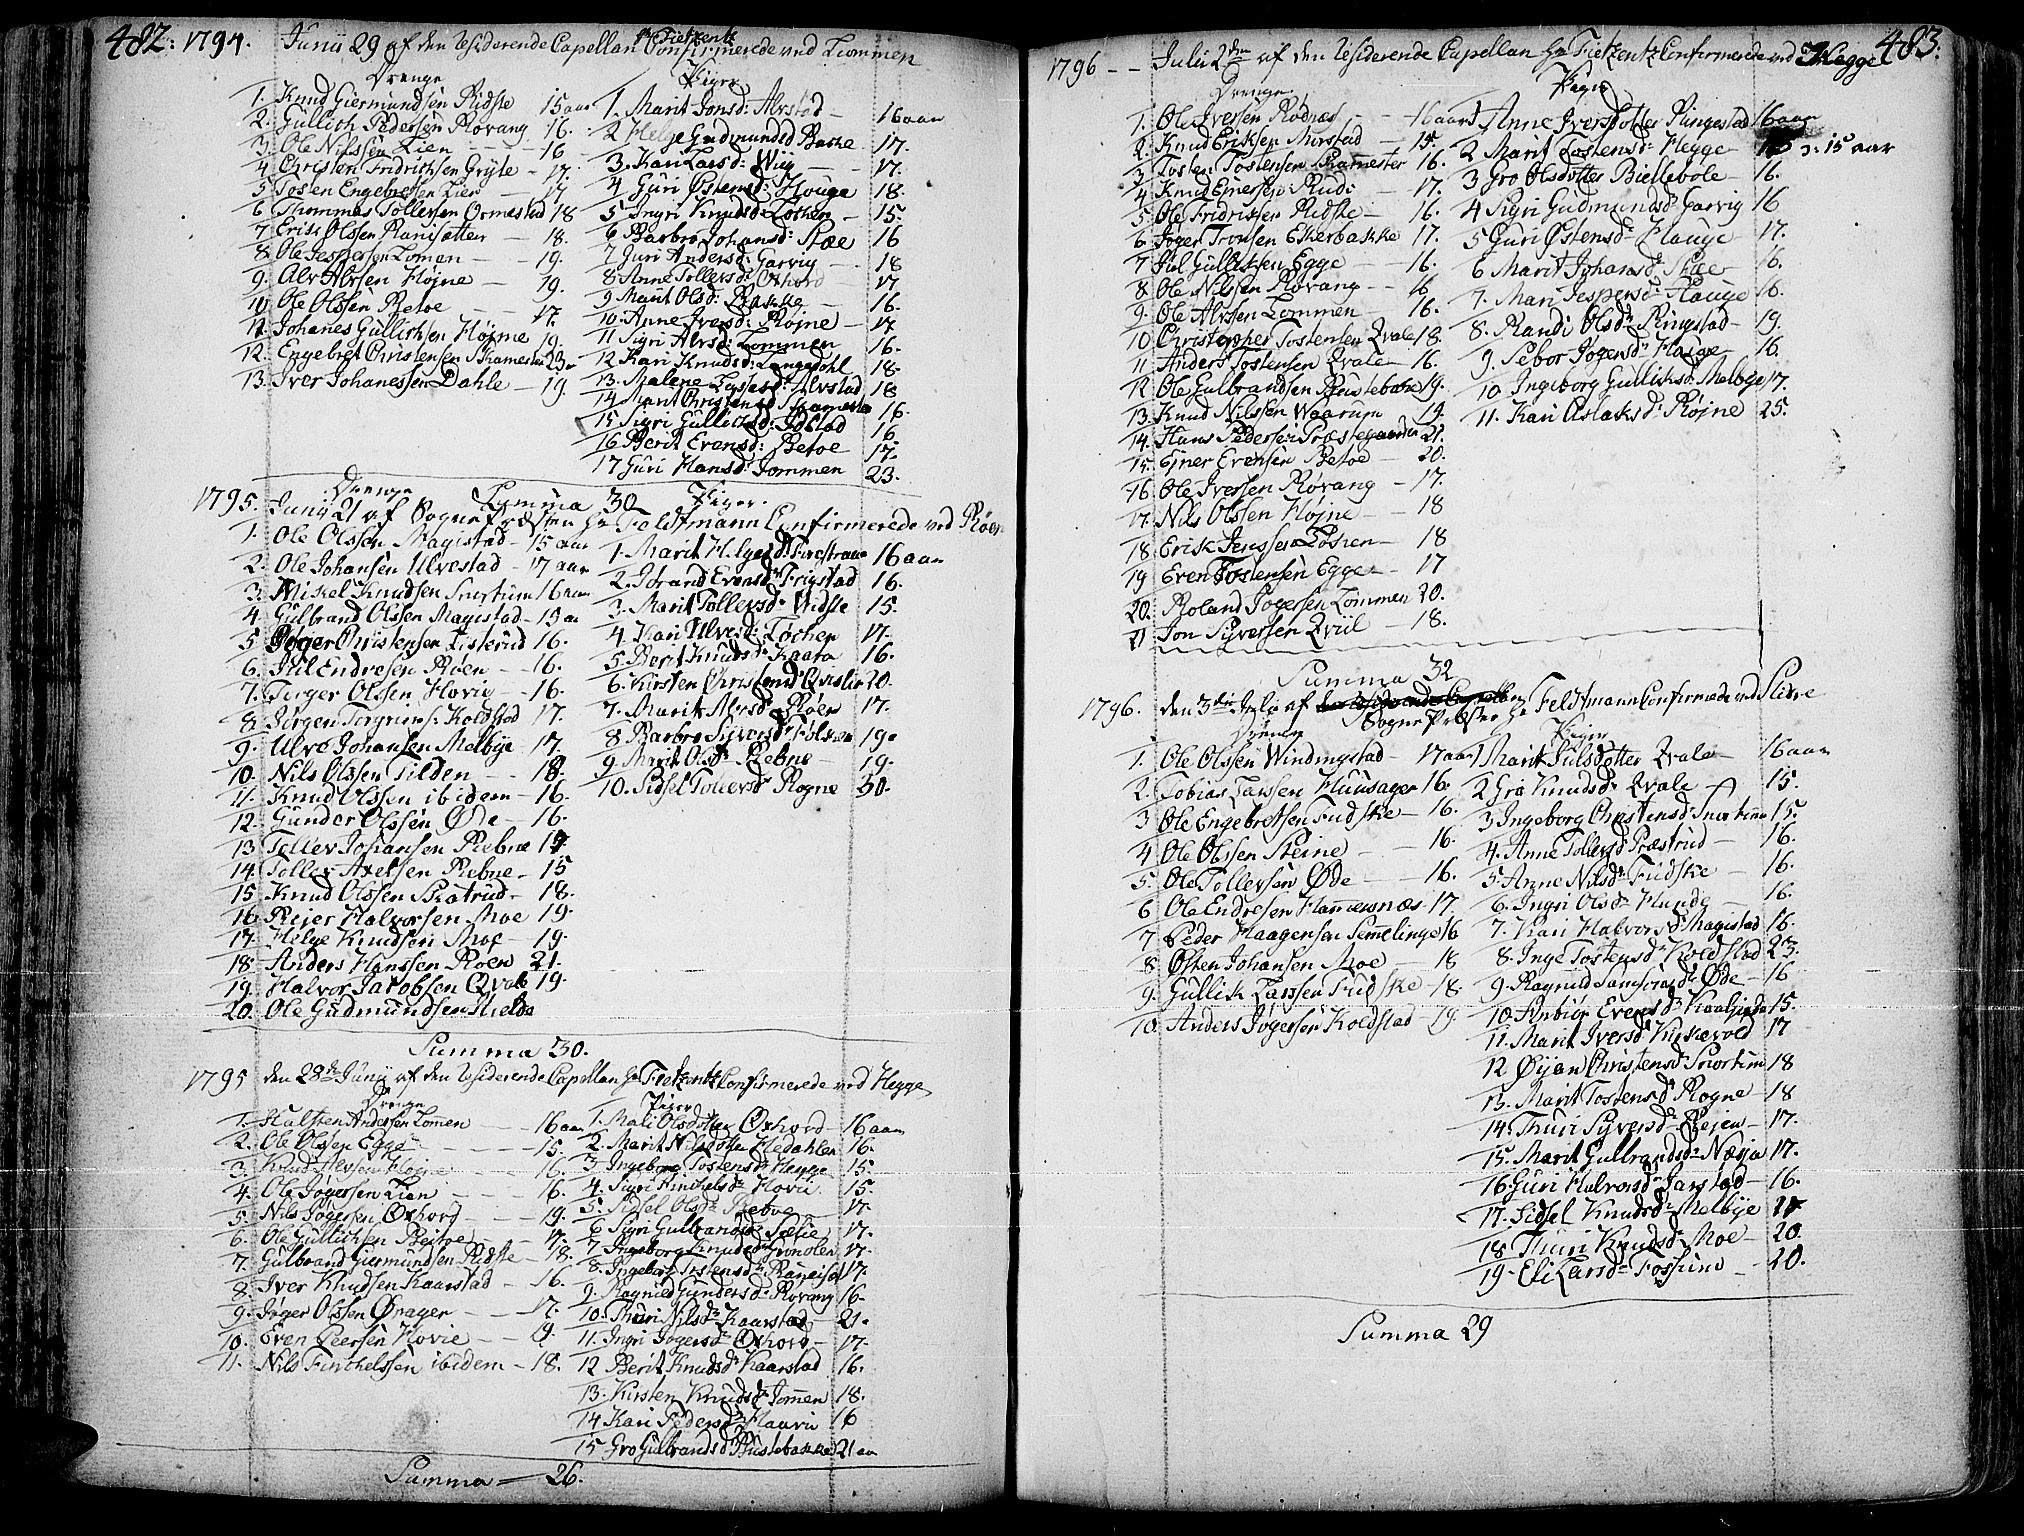 482. 1794. Junii 29 af den residerende Capellan Hr Fietzentz Confirmerede ved Lommen
Drenge
1. Knud Giermundsen Ridste 15 aar
2. Gullich Pedersen Rovang 16.
3. Ole Nilssen Lien 16
4 Christen Fridrichsen Gryte 17.
5 Tosten Engebretsen Lien 17
6 Thommas Tollersen Ormestad 18
7 Erik Olssen Ranisatter 18.
8 Ole Jespersen Lomen 19.
9. Alv Alvsen Højne 19.
10 Ole Olssen Betoe 17.
11. Johanes Gullichsen Højme 19.
12. Engebret Christensen Skamesten 23
13. Iver Johanessen Dahle 19.
Piger
1. Marit Jonsd: Alvstad 16 aar
2 Helge Gudmundsd Bakke 17.
3. Kari Larsd: Wiig 17.
4 Guri Østensd: Houge 18.
5 Ingri Knudsd: Løkken 15.
6 Barbro Johansd: Røe 16
7 Guri Andersd: Garvig 18
8 Anne Tollersd: Oxhord 17
9 Marit Olsd: Bakke 16.
10. Anne Iversd: Røjne 17.
11 Sigri Alvsd: Lommen 16.
12 Kari Knudsd: Lengedohl 18.
13. Malene Larsd: Alvstad 18
14 Marit Christensd Skamesten 16.
15 Sigri Gullichsd: Idstad 16
16 Berit Evensd: Betoe 17.
17 Guri Hansd: Jommen 23.
Summa 30
1795. Junij 21 af Sognepresten Hr Feldtmann Confirmerede ved Røen
Drenge
1. Ole Olssen Magistad 15 aar
2. Ole Johansen Ulvestad 17 aar
3. Mikel Knudsen Snortum 16 aar
4. Gulbrand Olssen Magistad 15 aar
5 Joger Christensen Listerud 16.
6. Jul Endresen Røen 16.
7. Turger Olssen Hovig 16.
8. Jørgen Torgrims: Koldstad 17.
9. Ulve Johansen Melbye 17.
10. Nils Olssen Tilden 18.
11. Knud Olssen ibidem 16.
12. Gunder Olssen Øde 16.
13 Toller Johansen Rebne 17
14 Toller Axelsen Rebne 15
15 Knud Olssen Skatrud 18.
16. Reier Halvorsen Moe 19.
17. Helge Knudsen Moe 19.
18. Anders Hanssen Røen 21.
19. Halvor Jacobsen Qvale 19.
20. Ole Gudmundsen Hielde
Piger.
1. Marit Helgesd: Furestrand 16 aar
2. Jorand Evensd: Frigstad 16.
3. Marit Tollersd: Widste 15.
4. Kari Ulvesd: Løchen 17.
5. Berit Knudsd: Kaara 16.
6. Kirsten Christensd Qvislin 20.
7. Marit Alvsd: Røen 17.
8 Barbro Siversd: Folven 19.
9. Marit Olsd: Rebne 19.
10. Sidsel Tollersd Rogne 30.
Summa 30.
1795 den 28de Junij af den residerende Capellan Hr Fietzentz Confirmerede ved Hegge
Drenge
1. Halsten Andersen Lomen 16 aar
2. Ole Olssen Egge 15.
3 Knud Alvsen Højne 16.
4. Ole Jogersen Lien 16.
5. Nils Jogersen Oxhord 19.
6. Ole Gullichsen Beitoe 17.
7. Gulbrand Giermundsen Ridste 18.
8. Iver Knudsen Kaarstad 16.
9. Joger Olssen Ørager 17.
10. Even Peersen Hovie 19.
11. Nils Finchelssen ibidem 18.
Piger
1. Mali Olsdotter Oxhord 16 aar
2. Marit Nilsdotter Hedahlen 16.
3. Ingeborg Tostensd: Hegge 15.
4. Sigri Finchelsd: Hovie 15.
5. Sidsel Olsd: Betoe 17.
6 Sigri Gulbrandsd: Sælie 17.
7. Ingeborg Knudsd: Hunolen 17.
8. Ingeborg Tostensd: Raneisat 17.
9. Ragnild Gundersd: Rovang 16.
10. Thuri Nilsd: Kaarstad 21.
11. Ingri Jogersd: Oxhord 17.
12 Berit Knudsd: Kaarstad 16.
13. Kirsten Knudsd: Jommen 18.
14 Kari Pedersd: Haavie 16
15 Gro Gulbrandsd Rustebakke 21 aar
Summa 26.
483.
1796 -- Julii 2den af den residerende Capellan Hr Fietzentz Confirmerede ved Hegge
Drenge.
1. Ole Iversen Rodnes 16 aar
2. Knud Eriksen Morstad 15.
3 Tosten Tostensen Skamester 16.
4 Knud Ejnersen Rudi 17.
5. Ole Fridrichsen Ridste 16.
6. Joger Tronsen Ekerbakke 17.
7 Juul Gullichsen Egge 16.
8 Ole Nilssen Rovang 16
9. Ole Alvssen Lommen 16.
10 Christopher Tostensen Qvale 18.
11 Anders Tostensen Qvale 16.
12 Ole Gulbrandsen Rustebake 19.
13. Knud Nilssen Waarum 19.
14. Hans Pedersen Præstegaarden 21.
15. Ejner Evensen Betoe 20.
16 Ole Iversen Rovang 17.
17. Nils Olssen Højne 18
18. Erik Jenssen Løken 18
19 Even Tostensen Egge 17
20. Roland Jogersen Lommen 20.
21 Jon Syversen Qviil 18.
Piger
1 Anne Iversdotter Ringestad 16 aar
2 Marit Tostensd: Hegge ɔ: 15 aar
3 Gro Olsdotter Biellebøle 16.
4 Sigri Gudmundsd: Garvig 16
5 Guri Østensd: Hauge 17.
6 Marit Johansd: Skae 16.
7. Mari Jespersd: Hauge 16.
8. Randi Olsd: Ringstad 19.
9. Sebor Jogersd: Hauge 16.
10. Ingeborg Gullichsd: Melbye 17.
11. Kari Aslaksd: Røjne 25.
Summa 32
1796. den 3die Julii af den residerende Capellan Sogne Præsten Hr Feldtmann Confirmerede ved Slidre
Drenge
1. Ole Olssen Windingstad 17 aar
2. Tobias Larssen Huusager 16.
3 Ole Engebretsen Fudske 16.
4 Ole Olssen Steine 16.
5. Ole Tollersen Øde 16.
6 Ole Endresen Hamersnæs 17.
7 Peder Haagensen Semelinge 16
8 Østen Johansen Moe 18
9. Gullik Larssen Fudske 18.
10. Anders Jogersen Koldstad 19.
Piger
1 Marit Julsdotter Qvale 16 aar
2 Gro Knudsd: Qvale 15.
3 Ingeborg Christensd: Snortum 15.
4. Anne Tollersd: Præstrud 16.
5 Anne Nilsd: Fudske 16.
6. Ingri Olsd: Hunde 16.
7. Kari Halvorsd: Magistad 16.
8. Inge Tostensd: Koldstad 23.
9. Ragnild Samsonsd: Øde 16
10. Anbiør Evensd: Kaaljorde 15.
11. Marit Iversd: Kirkevold 17
12 Øijan Christensd: Snortum 18
13. Marit Tostensd: Rogne 18
14 Thuri Syversd: Reien 17.
15. Marit Gulbrandsd: Næsja 17.
16 Guri Halvorsd: Jarstad 16.
17. Sidsel Knudsd: Melbye 21
18 Thuri Knudsd: Moe 20.
19. Eli Larsd: Fossum 20.
Summa 29